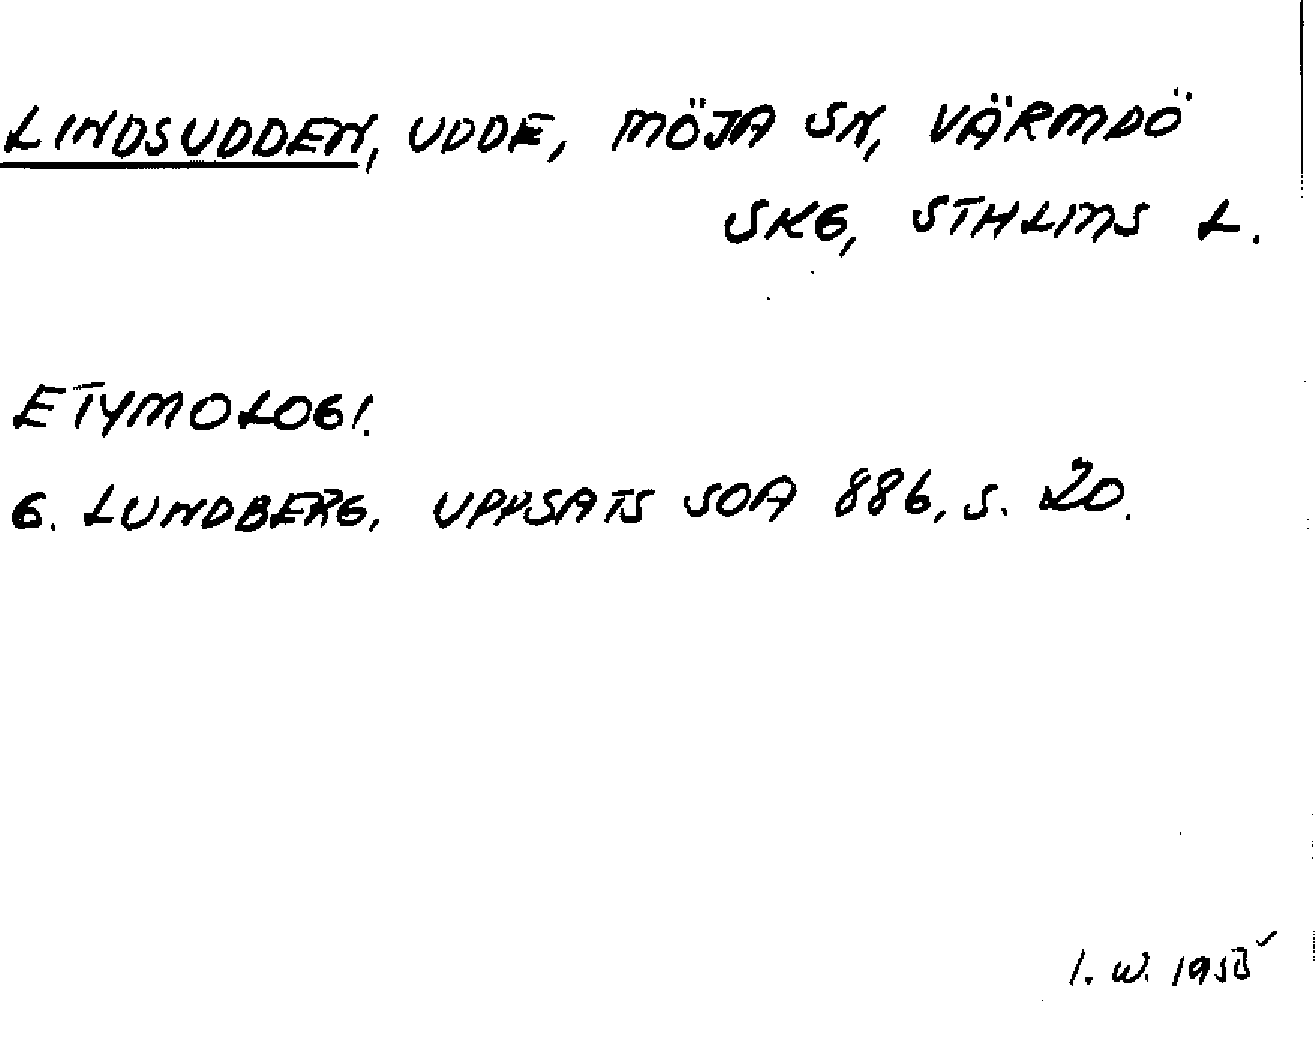 LINDSUDDEN, UDDE, MÖJA SN, VÄRMDÖ
SKG, STHLMS L.
ETYMOLOGI.
G. LUNDBERG, UPPSATS SOA 886, S. 20.
I. W. 1958